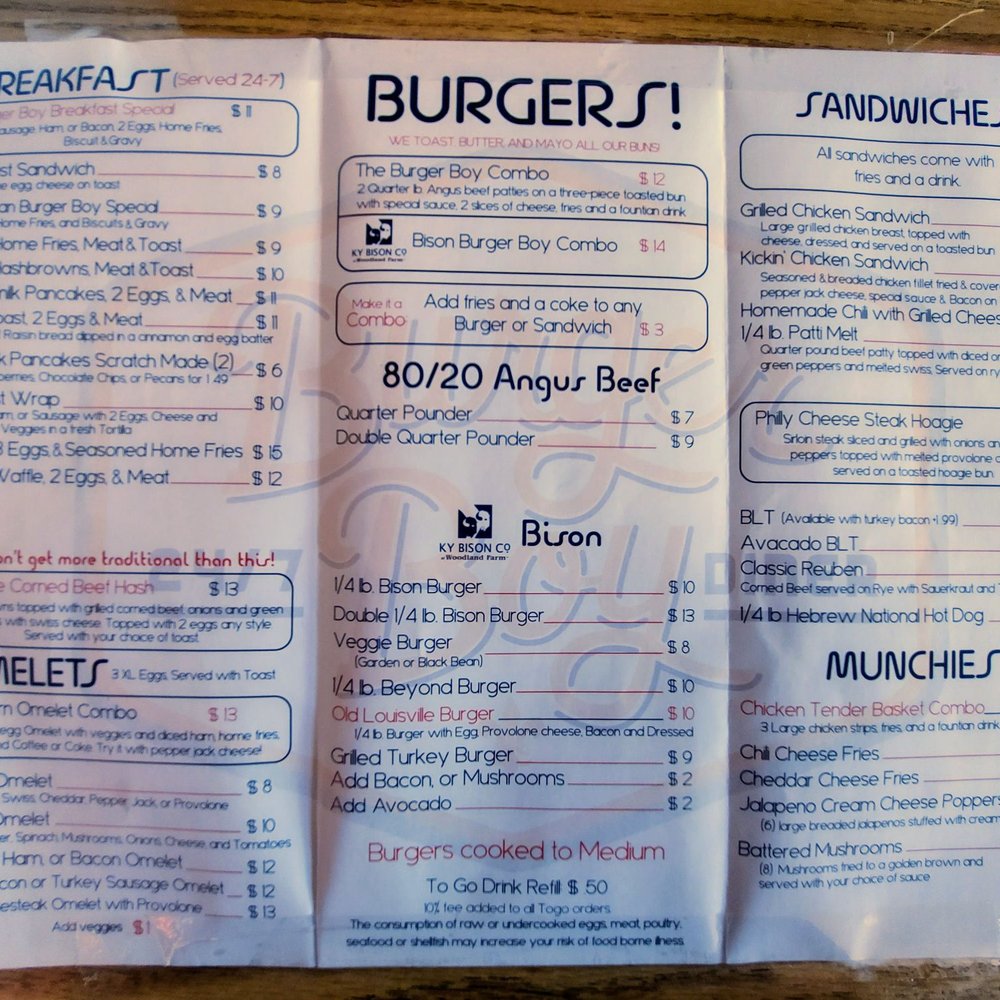 BREAKFAST (Served 24-7)
Boy Breakfast Special $11
Ham, or Bacon, 2 Eggs, Home Fries,
Biscuit & Gravy
Sandwich $8
egg cheese on toast
Burger Boy Special $9
Home Fries, and Biscuits & Gravy
Home Fries, Meat & Toast $9
Hashbrowns, Meat & Toast $10
Pancakes, 2 Eggs, & Meat $11
2 Eggs & Meat $11
Raisin bread dipped in a cinnamon and egg batter
Pancakes Scratch Made (2) $6
Chocolate Chips, or Pecans for 1.49
Wrap $10
or Sausage with 2 Eggs, Cheese and
Veggies in a fresh Tortilla
3 Eggs, & Seasoned Home Fries $15
Waffle, 2 Eggs, & Meat $12
get more traditional than this!
Corned Beef Hash $13
topped with grilled corned beef, onions and green
with swiss cheese. Topped with 2 eggs any style
Served with your choice of toast
OMELETS 3 XL Eggs, Served with Toast
Omelet Combo $13
egg Omelet with veggies and diced ham, home fries,
Coffee or Coke Try it with pepper jack cheese!
Omelet $8
Swiss, Cheddar, Pepper Jack, or Provolone
Omelet $10
Spinach, Mushrooms, Onions, Cheese, and Tomatoes
Ham, or Bacon Omelet $12
or Turkey Sausage Omelet $12
Omelet with Provolone $13
Add veggies $1
BURGERS!
WE TOAST, BUTTER, AND MAYO ALL OUR BUNS!
The Burger Boy Combo $12
2 Quarter lb. Angus beef patties on a three-piece toasted bun
with special sauce, 2 slices of cheese, fries and a fountian drink
KY BISON CO
at Woodland Farm
Bison Burger Boy Combo $14
Make it a
Combo
Add fries and a coke to any
Burger or Sandwich $3
80/20 Angus Beef
Quarter Pounder $7
Double Quarter Pounder $9
KY BISON CO
at Woodland Farm
Bison
1/4 lb. Bison Burger $10
Double 1/4 lb. Bison Burger $13
Veggie Burger $8
(Garden or Black Bean)
1/4 lb. Beyond Burger $10
Old Louisville Burger $10
1/4 lb Burger with Egg, Provolone cheese, Bacon and Dressed
Grilled Turkey Burger $9
Add Bacon, or Mushrooms $2
Add Avocado $2
Burgers cooked to Medium
To Go Drink Refill $ 50
10% fee added to all Togo orders
The consumption of raw or undercooked eggs, meat, poultry,
seafood or shellfish may increase your risk of food borne illness
Burger
Boy
SANDWICHES
All sandwiches come with
fries and a drink.
Grilled Chicken Sandwich
Large grilled chicken breast, topped with
cheese, dressed, and served on a toasted bun
Kickin' Chicken Sandwich
Seasoned & breaded chicken fillet fried &
pepper jack cheese, special sauce & Bacon on
Homemade Chili with Grilled Cheese
1/4 lb. Patti Melt
Quarter pound beef patty topped with diced
green peppers and melted swiss, Served on
Philly Cheese Steak Hoagie
Sirloin steak sliced and grilled with onions
peppers topped with melted provolone
served on a toasted hoagie bun
BLT (Available with turkey bacon +1.99)
Avacado BLT
Classic Reuben
Corned Beef served on Rye with Sauerkraut and
1/4 lb Hebrew National Hot Dog
MUNCHIES
Chicken Tender Basket Combo
3 Large chicken strips, fries, and a fountian drink
Chili Cheese Fries
Cheddar Cheese Fries
Jalapeno Cream Cheese Poppers
(6) large breaded jalapenos stuffed with cream
Battered Mushrooms
(8) Mushrooms fried to a golden brown and
served with your choice of sauce